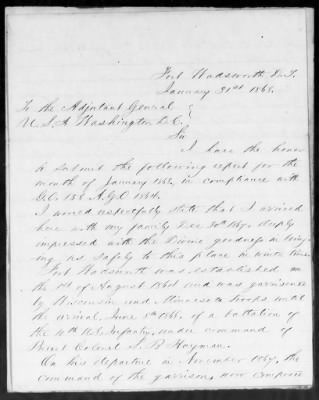 Fort Wadsworth D.T.
January 31st 1868.
To the Adjutant General
U.S.A Washington D.C.
Sir
I have the honor
to submit the following report for the
month of January 1868, in compliance with
G.O. 158 A.G.O 1864.
I would respectfully state that I arrived
here with my family Dec 30th 1867, deeply
impressed with the Divine goodness in bring-
ing us safely to this place in winter time.
Fort Wadsworth was established on
the 1st of August 1864 and was garrisoned
by Wisconsin and Minnesota troops until
the arrival, June 1866, of a battalion of
the 10th U.S. Infantry, under command of
Brevet Colonel S. B Hayman.
On his departure in November 1867, the
command of the garrison, now composed